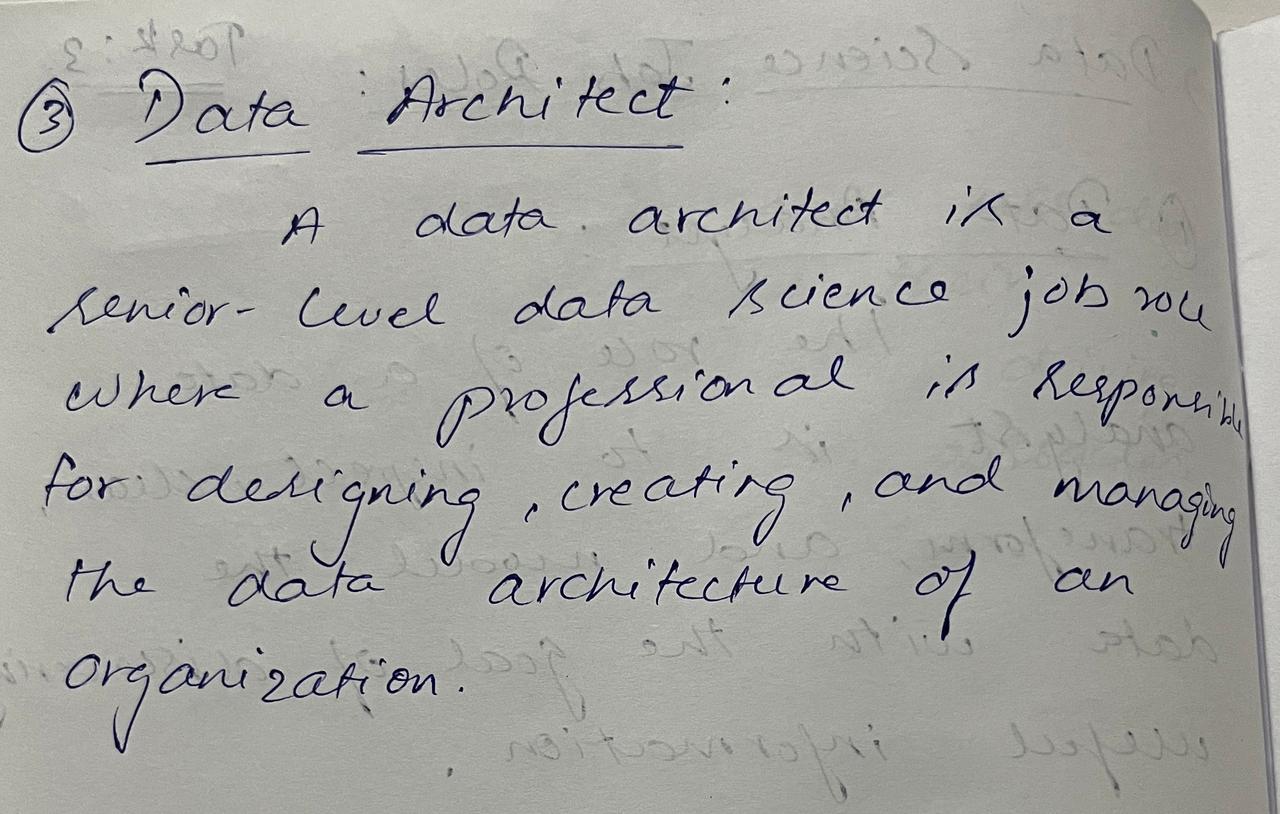 ③ Data Architect :
A data architect is a
senior-level data science job role
where a professional is responsible
for designing, creating, and managing
the data architecture of an
organization.